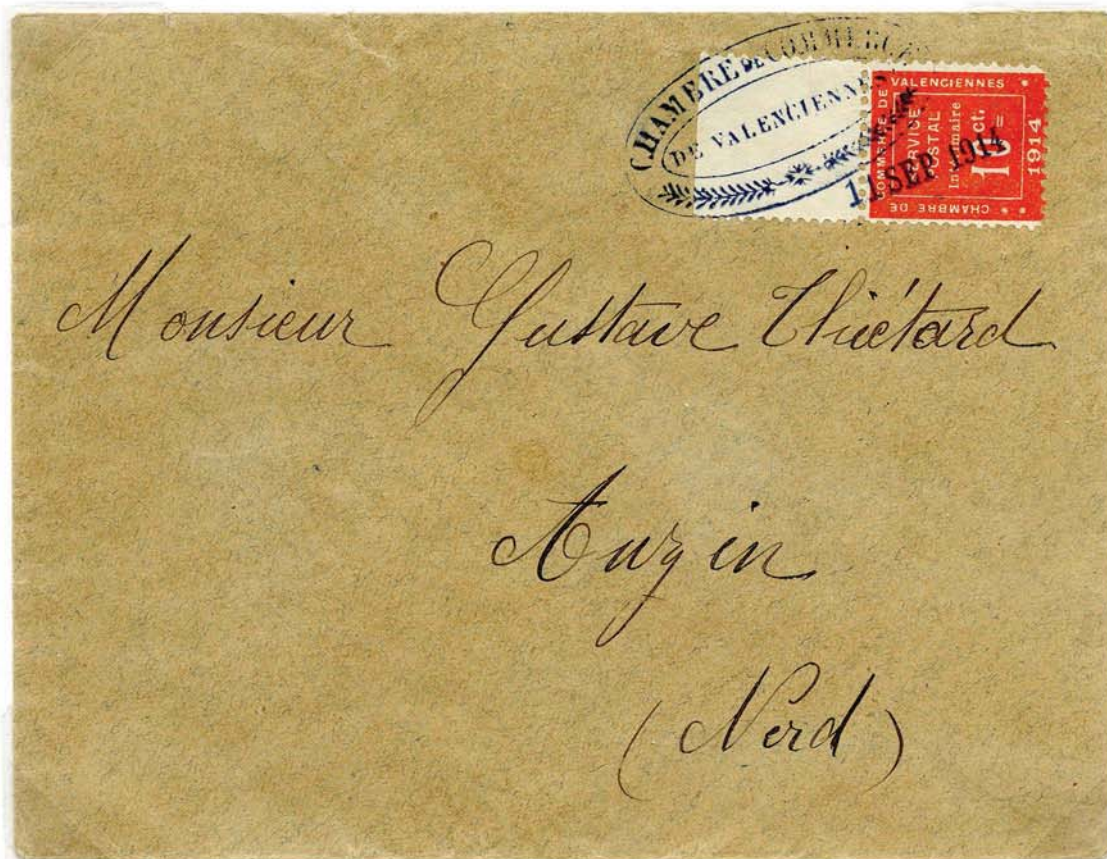 CHAMBRE DE COMMERCE
DE VALENCIENNES
11 SEP 1914
CHAMBRE DE COMMERCE DE VALENCIENNES 1914
SERVICE
POSTAL
Intérimaire
10 ct.
Monsieur Gustave Thiétard
Anzin
(Nord)